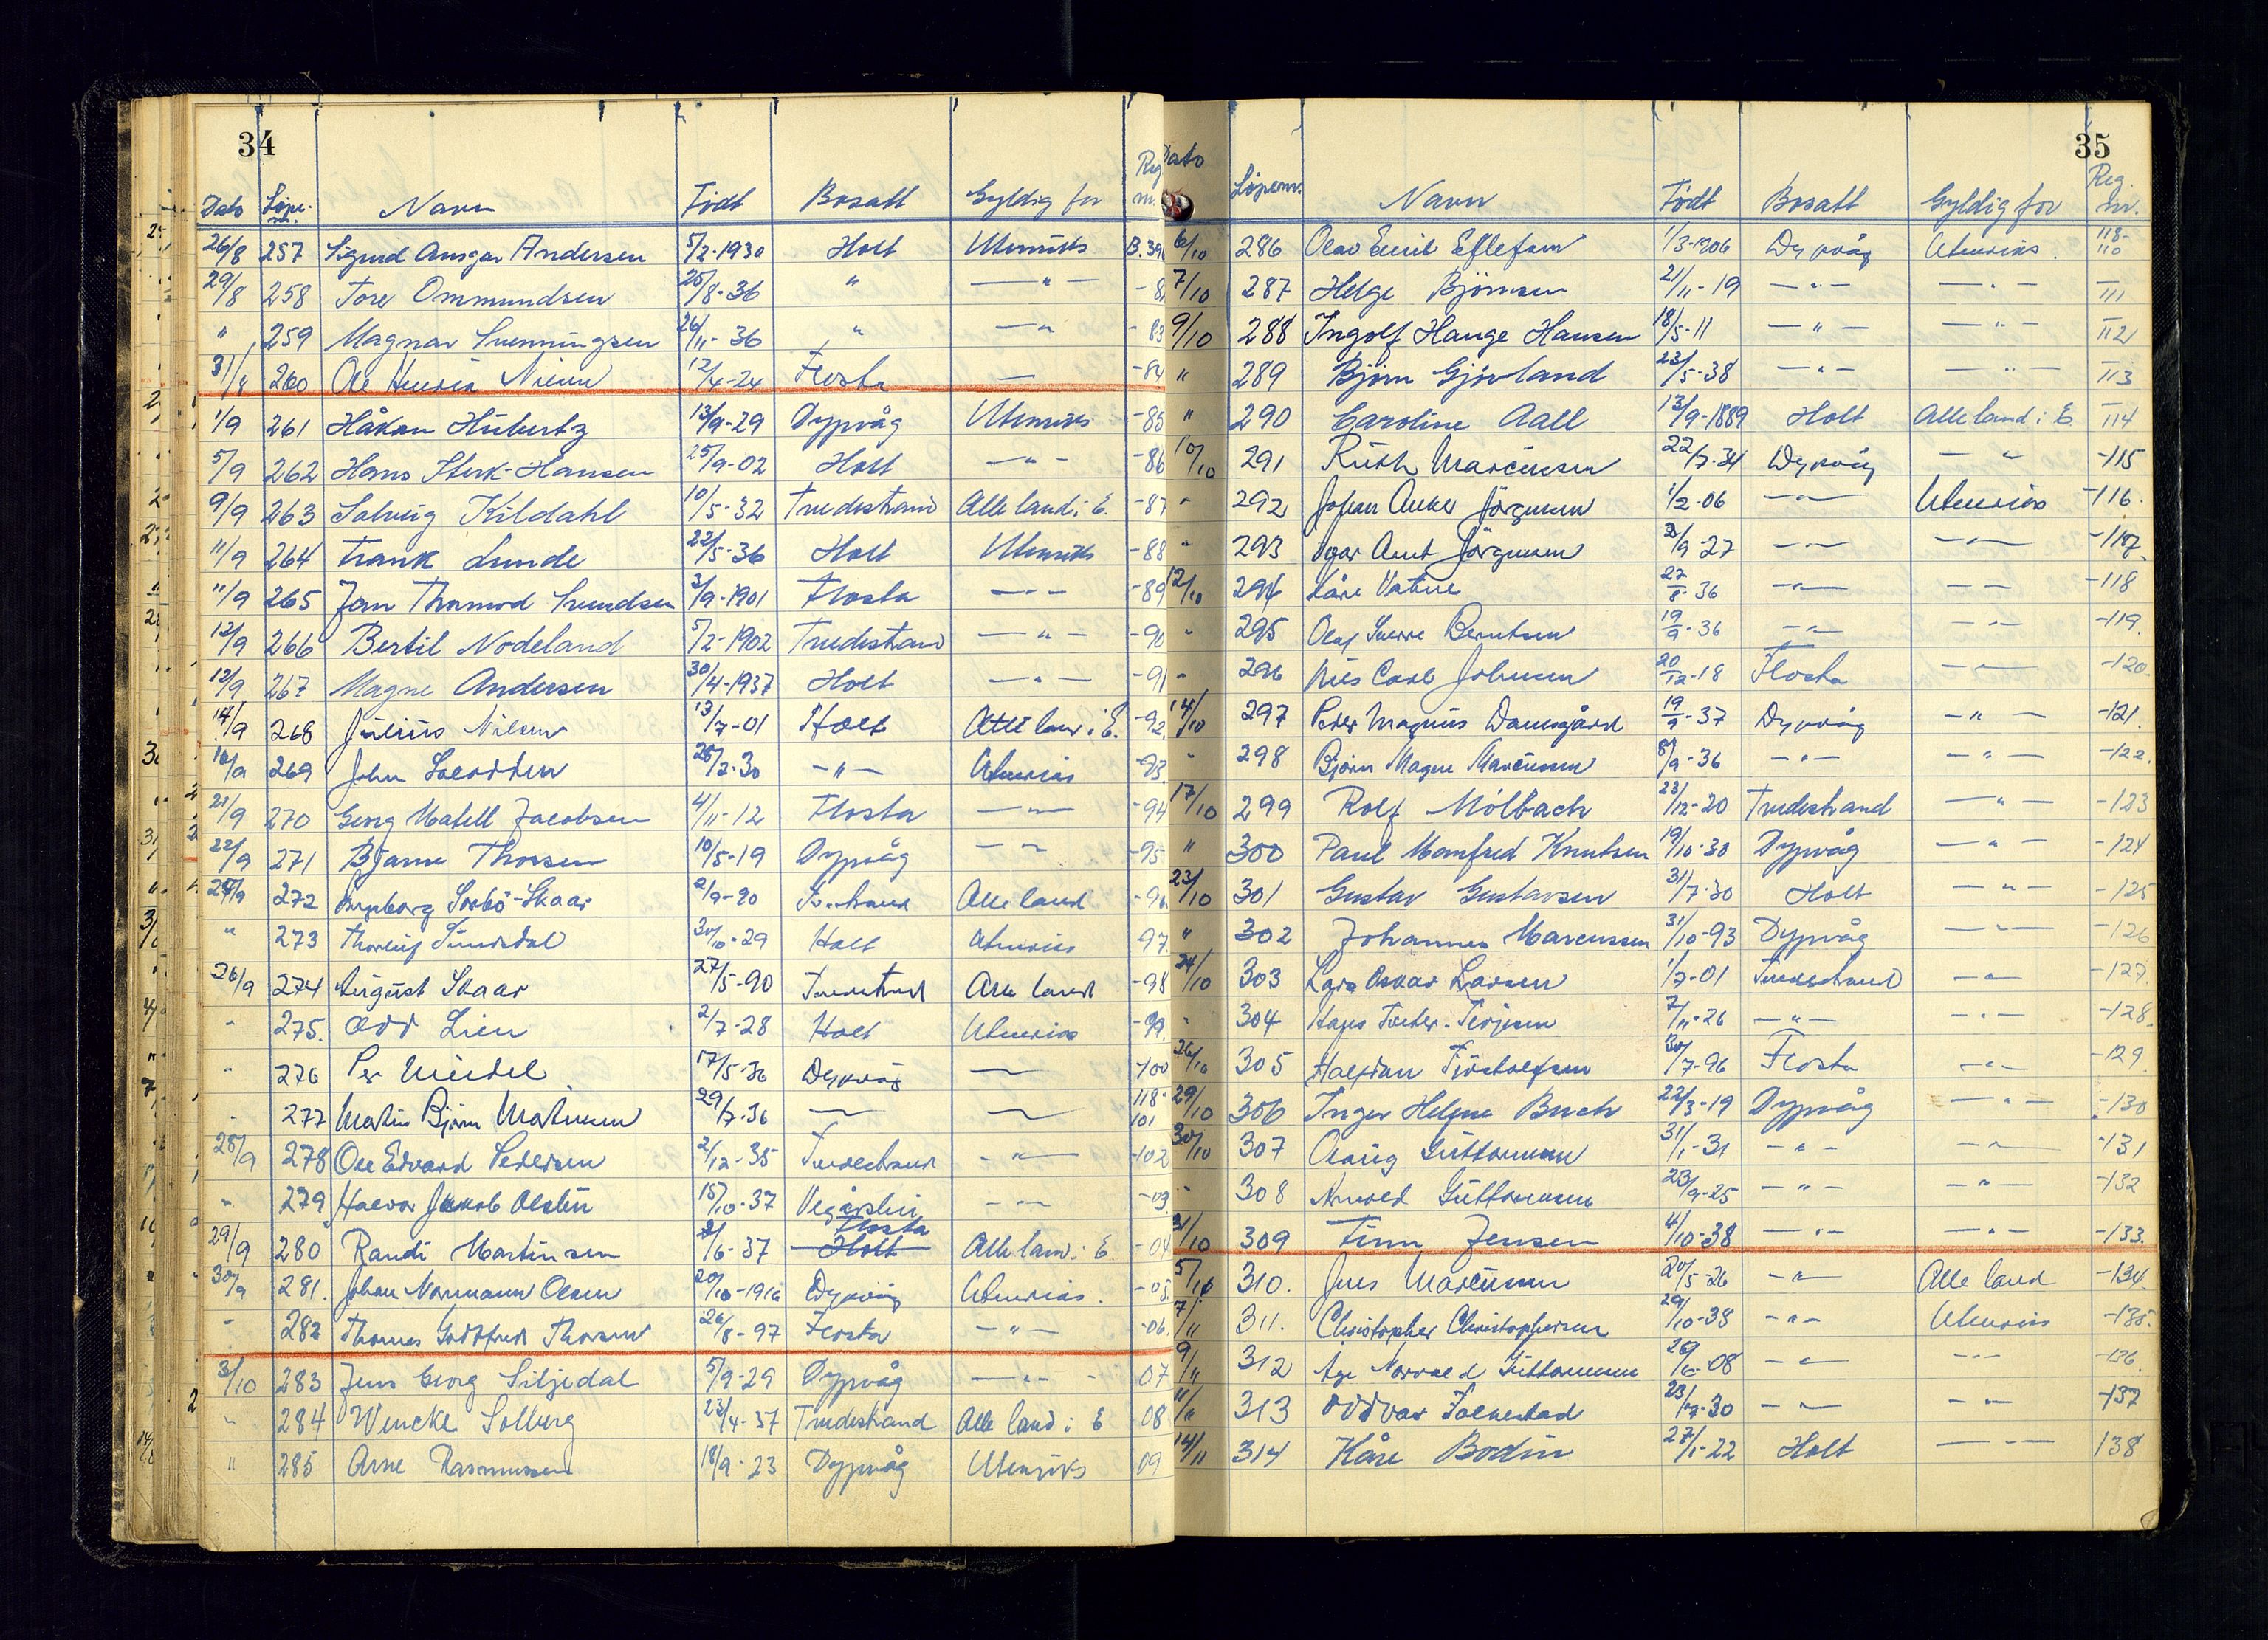 34
Dato Løpe-nr. Navn Født Bosatt Gyldig for Reg nr.
26/8 257 Sigurd Ansgar Andersen 5/2-1930 Holt Utenriks B.396
29/8 258 Tore Ommundsen 20/8-36 " — " —
" 259 Magnar Svenningsen 26/11-36 " — " -83
31/8 260 Ole Henrik 12/4-24 Flosta — -84
1/9 261 Håkon Hubertz 13/9-29 Dypvåg Utenriks -85
5/9 262 Hans Sterk-Hansen 25/9-02 Holt — " — -86
9/9 263 Solveig Kildahl 10/5-32 Tvedestrand Alle land i E. -87
11/9 264 Frank Lunde 22/5-36 Holt Utenriks -88
11/9 265 Jern Thormod Svendsen 3/9-1901 Flosta — " — -89
12/9 266 Bertil Nodeland 5/2-1902 Tvedestrand — " — -90
12/9 267 Magne Andersen 30/4-1937 Holt — " — -91
14/9 268 Julius Nilsen 13/7-01 Holt Alle land i E. -92
269 John 28/2-30 — " — Utenriks -93.
21/9 270 Georg Matell Jacobsen 4/11-12 Flosta — " — -94
22/9 271 Bjarne Thorsen 10/5-19 Dypvåg — " — -95
24/9 272 Ingborg Skaar 2/9-90 Alle land -96
" 273 Thorleif Sundsdal 30/10-29 Holt Utenriks 97
26/9 274 August Skaar 27/5-90 Tvedestrand Alle land -98
" 275. Odd Lien 2/7-28 Holt Utenriks -99.
" 276 Per 17/5-36 Dypvåg — -100
" 277 Martin Bjørn Martinsen 29/7-36 — — 118-101
28/9 278 Ole Edvard Pedersen 2/12-35 Tvedestrand — " — -102
" 279 Halvor Jakob Olsten 15/10-37 Vegårshei — " — -03.
29/9 280 Randi Martinsen /6-37 Holt Flosta Alle land i E. -04
30/9 281. Johan Normann Olsen 20/10-1916 Dypvåg Utenriks. -05.
" 282 Thomas Godtfred Thorsen 26/8-97 Flosta — " — -06.
3/10 283 Jens Georg Siljedal 5/9-29 Dypvåg — " — 07
" 284 Wencke Solberg 23/4-37 Tvedestrand Alle land i E 08
" 285 Arne Rasmussen 18/9-23 Dypvåg Utenriks 09
35
Dato Løpenr. Navn Født Bosatt Gyldig for Reg. nr.
6/10 286 Olav Emil Ellefsen 1/3-1906 Dypvåg Utenriks. 118-110
7/10 287 Helge Björnsen 21/11-19 — " — — " — 111
9/10 288 Ingolf Hauge Hansen 18/5-11 — " — — " — 112
" 289 Björn Gjövland 23/5-38 — " — — " — 113
" 290 Caroline Aall 13/9-1889 Holt Alle land i E. 114
10/10 291 Ruth Marcussen 22/7-34 Dypvåg — " -115
" 292 Johan Anker Jörgensen 1/2-06 — " — Utenriks -116.
" 293 Arnt Jörgensen /9-27 — " — — " — -117.
12/10 294 Kåre Vatne 27/8-36 — " — — " — -118
" 295 Olaf Sverre Berntsen 19/9-36 — " — — " — -119.
" 296 Nils Carl Johnsen 20/12-18 Flosta — " — -120.
14/10 297 Peder Magnus Damsgård 19/9-37 Dypvåg — " — -121.
" 298 Bjørn Magne Marcussen 8/9-36 — " — — " — -122.
17/10 299 Rolf Mölbach 23/12-20 Tvedestrand — " — -123
" 300 Paul Manfred Knutsen 19/10-30 Dypvåg — " — -124
23/10 301 Gustav Gustavsen 31/7-30 Holt — " — -125
" 302 Johannes Marcussen 31/10-93 Dypvåg — " — -126
24/10 303 Lars Oskar Larsen 1/7-01 Tvedestrand — " — -127.
" 304 Terjesen 7/11-26 — " — — " — -128.
26/10 305 Halfdan 30/7-96 Flosta — " — -129.
29/10 306 Inger Helene Buch 22/3-19 Dypvåg — " — -130
30/10 307 Olaug Guttormsen 31/1-31 — " — — " — -131
" 308 Arnold Guttormsen 23/9-25 — " — — " — -132
31/10 309 Finn Jensen 4/10-38 — " — — " — -133.
5/10 310. Jens Marcussen 20/5-26 — " — Alle land -134.
7/11 311. Christopher Christophersen 29/10-38 — " — Utenriks -135.
9/11 312 Åge Norvald Guttormsen 26/6-08 — " — — " — -136.
11/11 313 Oddvar Falkestad 23/9-30 — " — — " — -137
14/11 314 Kåre Bodin 27/1-22 Holt — " — 138